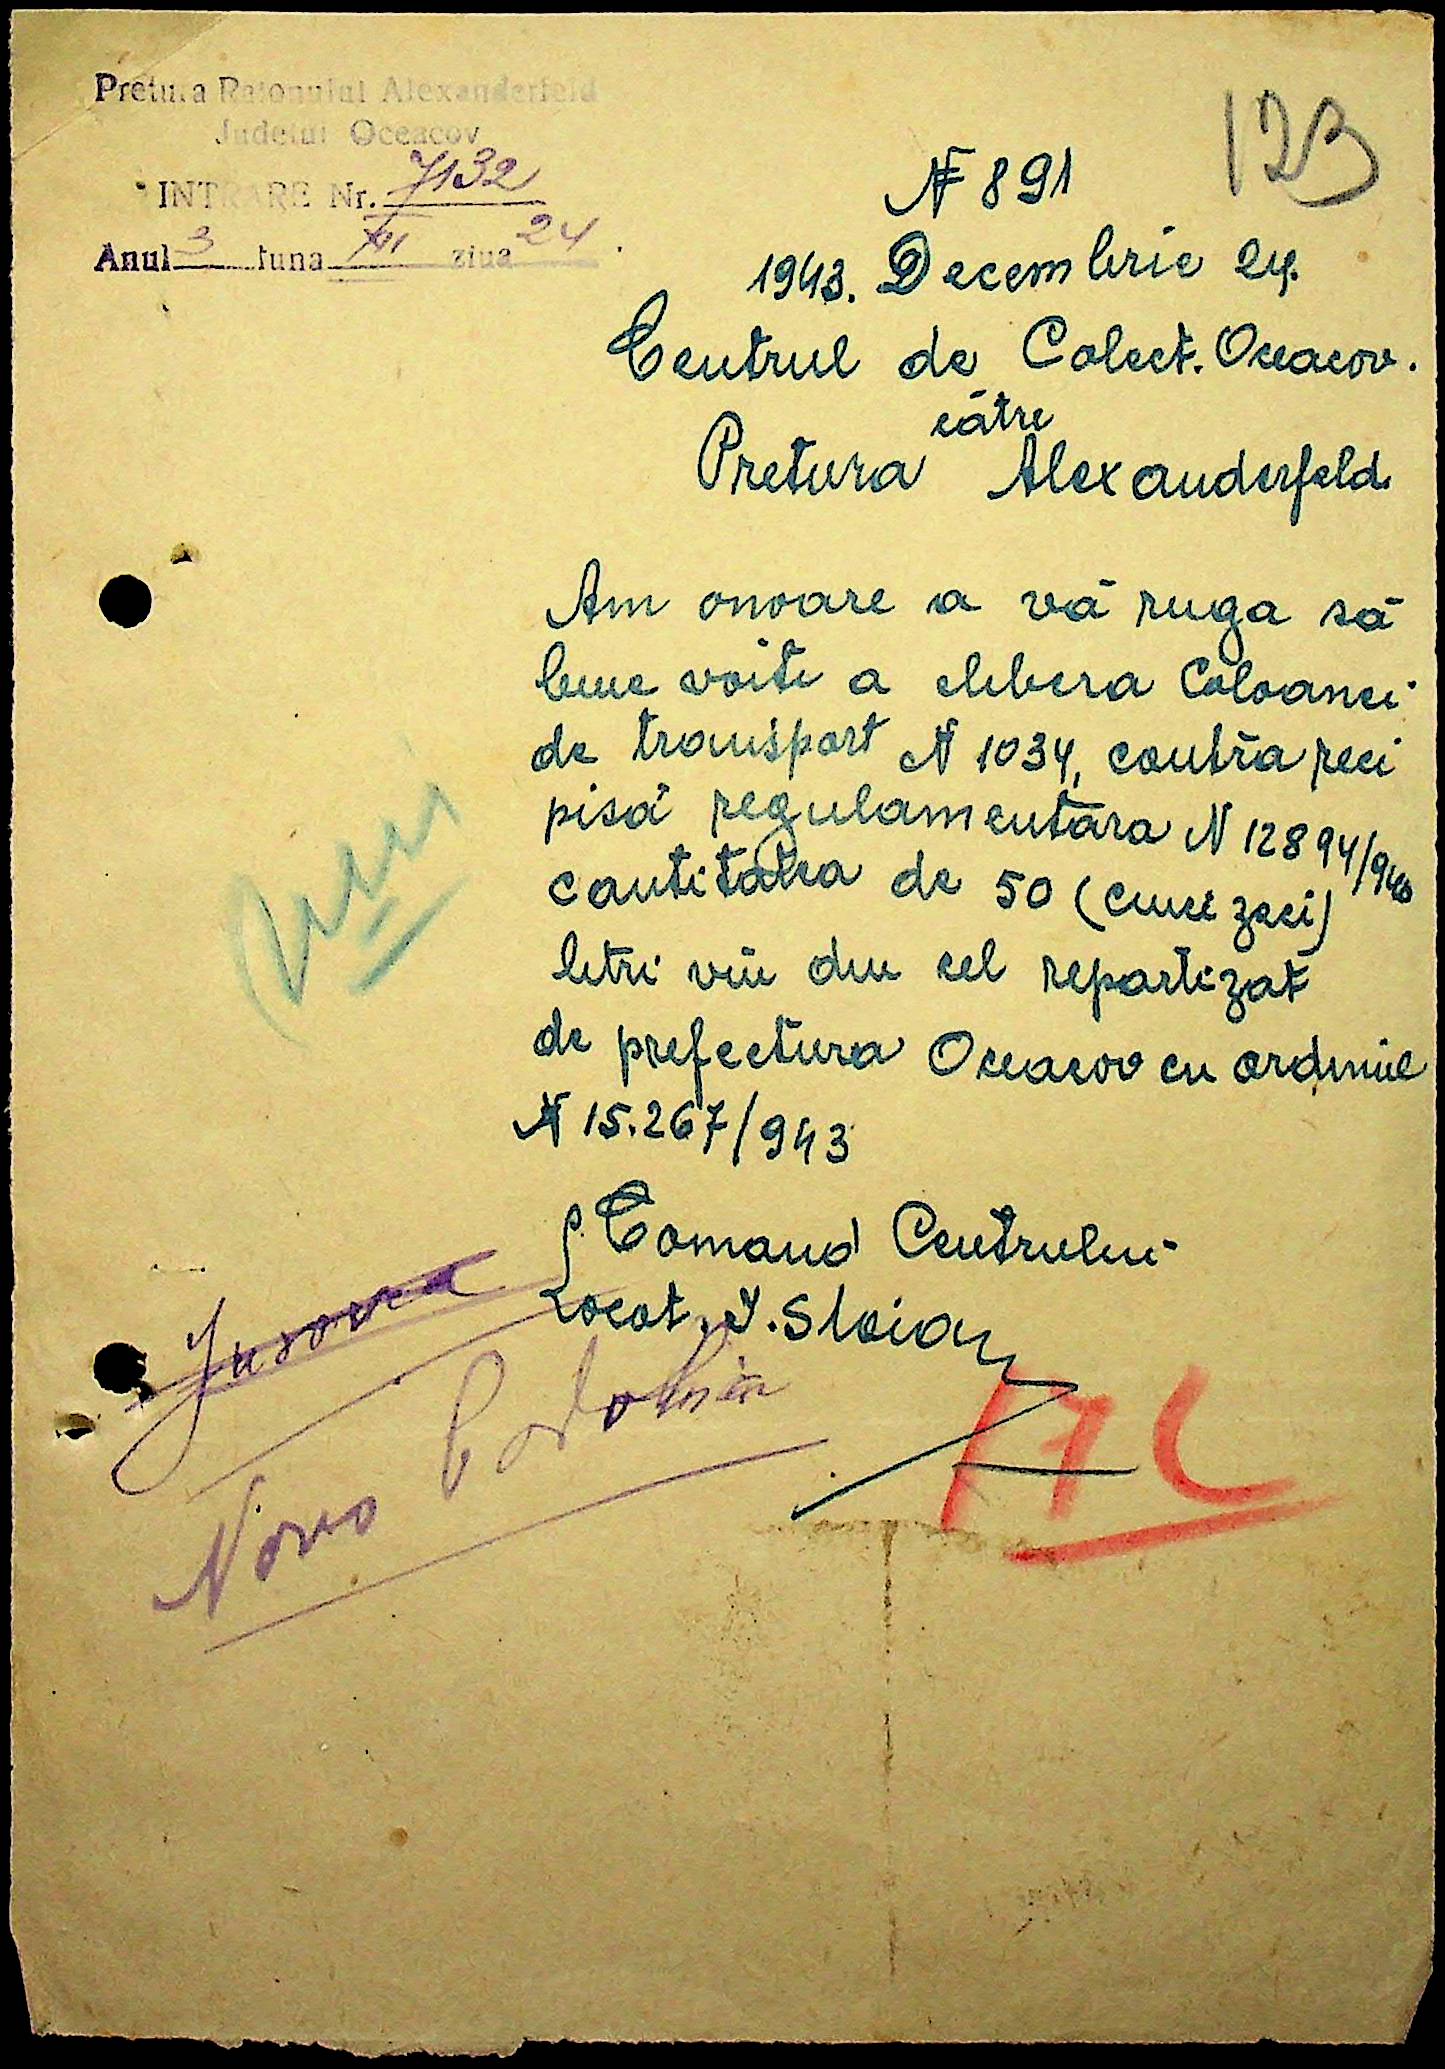 Pretura Raionului Alexanderfeld
Judetul Oceacov
INTRARE Nr. 7132
Anul 3 luna XII ziua 24
123
N 891
1943. Decembrie 24.
Centrul de Colect. Oceacov.
către
Pretura Alexanderfeld
Am onoare a vă ruga să
bine voiti a elibera Coloanei
de transport N 1034, contra reci
pisă regulamentara N 12894/940
cantitatea de 50 (cinci zeci)
litri vin din cel repartizat
de prefectura Oceacov cu ordinul
N 15.267/943
Comand Centrului
Locot. I. Stoian
Novo